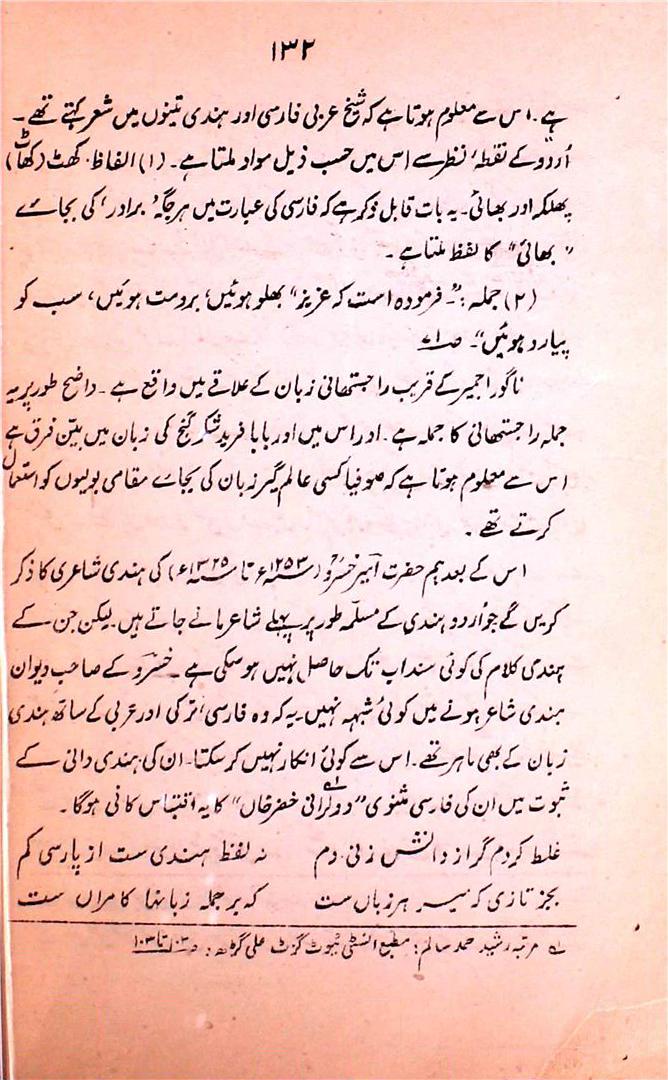 ۱۳۲
ہے۔ اس سے معلوم ہوتا ہے کہ شیخ عربی فارسی اور ہندی تینوں میں شعر کہتے تھے۔
اُردو کے نقطہ نظر سے اس میں حسب ذیل مواد ملتا ہے۔ (۱) الفاظ۔ کھٹ (کھاٹ)
پھلکہ اور بھائی۔ یہ بات قابل ذکر ہے کہ فارسی کی عبارت میں ہر جگہ 'برادر' کی بجائے
"بھائی" کا لفظ ملتا ہے۔
(۲) جملہ:۔ فرمودہ است کہ عزیز "بھلو ہوئیں، برومت ہوئیں، سب کو
پیارو ہوئیں"۔ ص ۷۱
ناگور اجمیر کے قریب راجستھانی زبان کے علاقے میں واقع ہے۔ واضح طور پر یہ
جملہ راجستھانی کا جملہ ہے۔ اور اس میں اور بابا فرید شکر گنج کی زبان میں بیّن فرق ہے
اس سے معلوم ہوتا ہے کہ صوفیا کسی عالم گیر زبان کی بجائے مقامی بولیوں کو استعمال
کرتے تھے۔
اس کے بعد ہم حضرت امیر خسرو (۱۲۵۳ء تا ۱۳۲۵ء) کی ہندی شاعری کا ذکر
کریں گے جو اُردو ہندی کے مسلّمہ طور پر پہلے شاعر مانے جاتے ہیں۔ لیکن جن کے
ہندی کلام کی کوئی سند اب تک حاصل نہیں ہو سکی ہے۔ خسرو کے صاحب دیوان
ہندی شاعر ہونے میں کوئی شبہہ نہیں۔ یہ کہ وہ فارسی، ترکی اور عربی کے ساتھ ہندی
زبان کے بھی ماہر تھے۔ اس سے کوئی انکار نہیں کر سکتا۔ ان کی ہندی دانی کے
ثبوت میں ان کی فارسی مثنوی "دولرانی خضر خاں" ۱ے کا یہ اقتباس کافی ہوگا۔
غلط کردم گر از دانش زنی دم نہ لفظ ہندی ست از پارسی کم
بجز تازی کہ میر ہر زباں ست کہ بر جملہ زبانہا کامراں ست
۱ے مرتبہ رشید احمد سالم: مطبع انسٹی ٹیوٹ گزٹ علی گڑھ: ص ۱۰۲ تا ۱۰۳